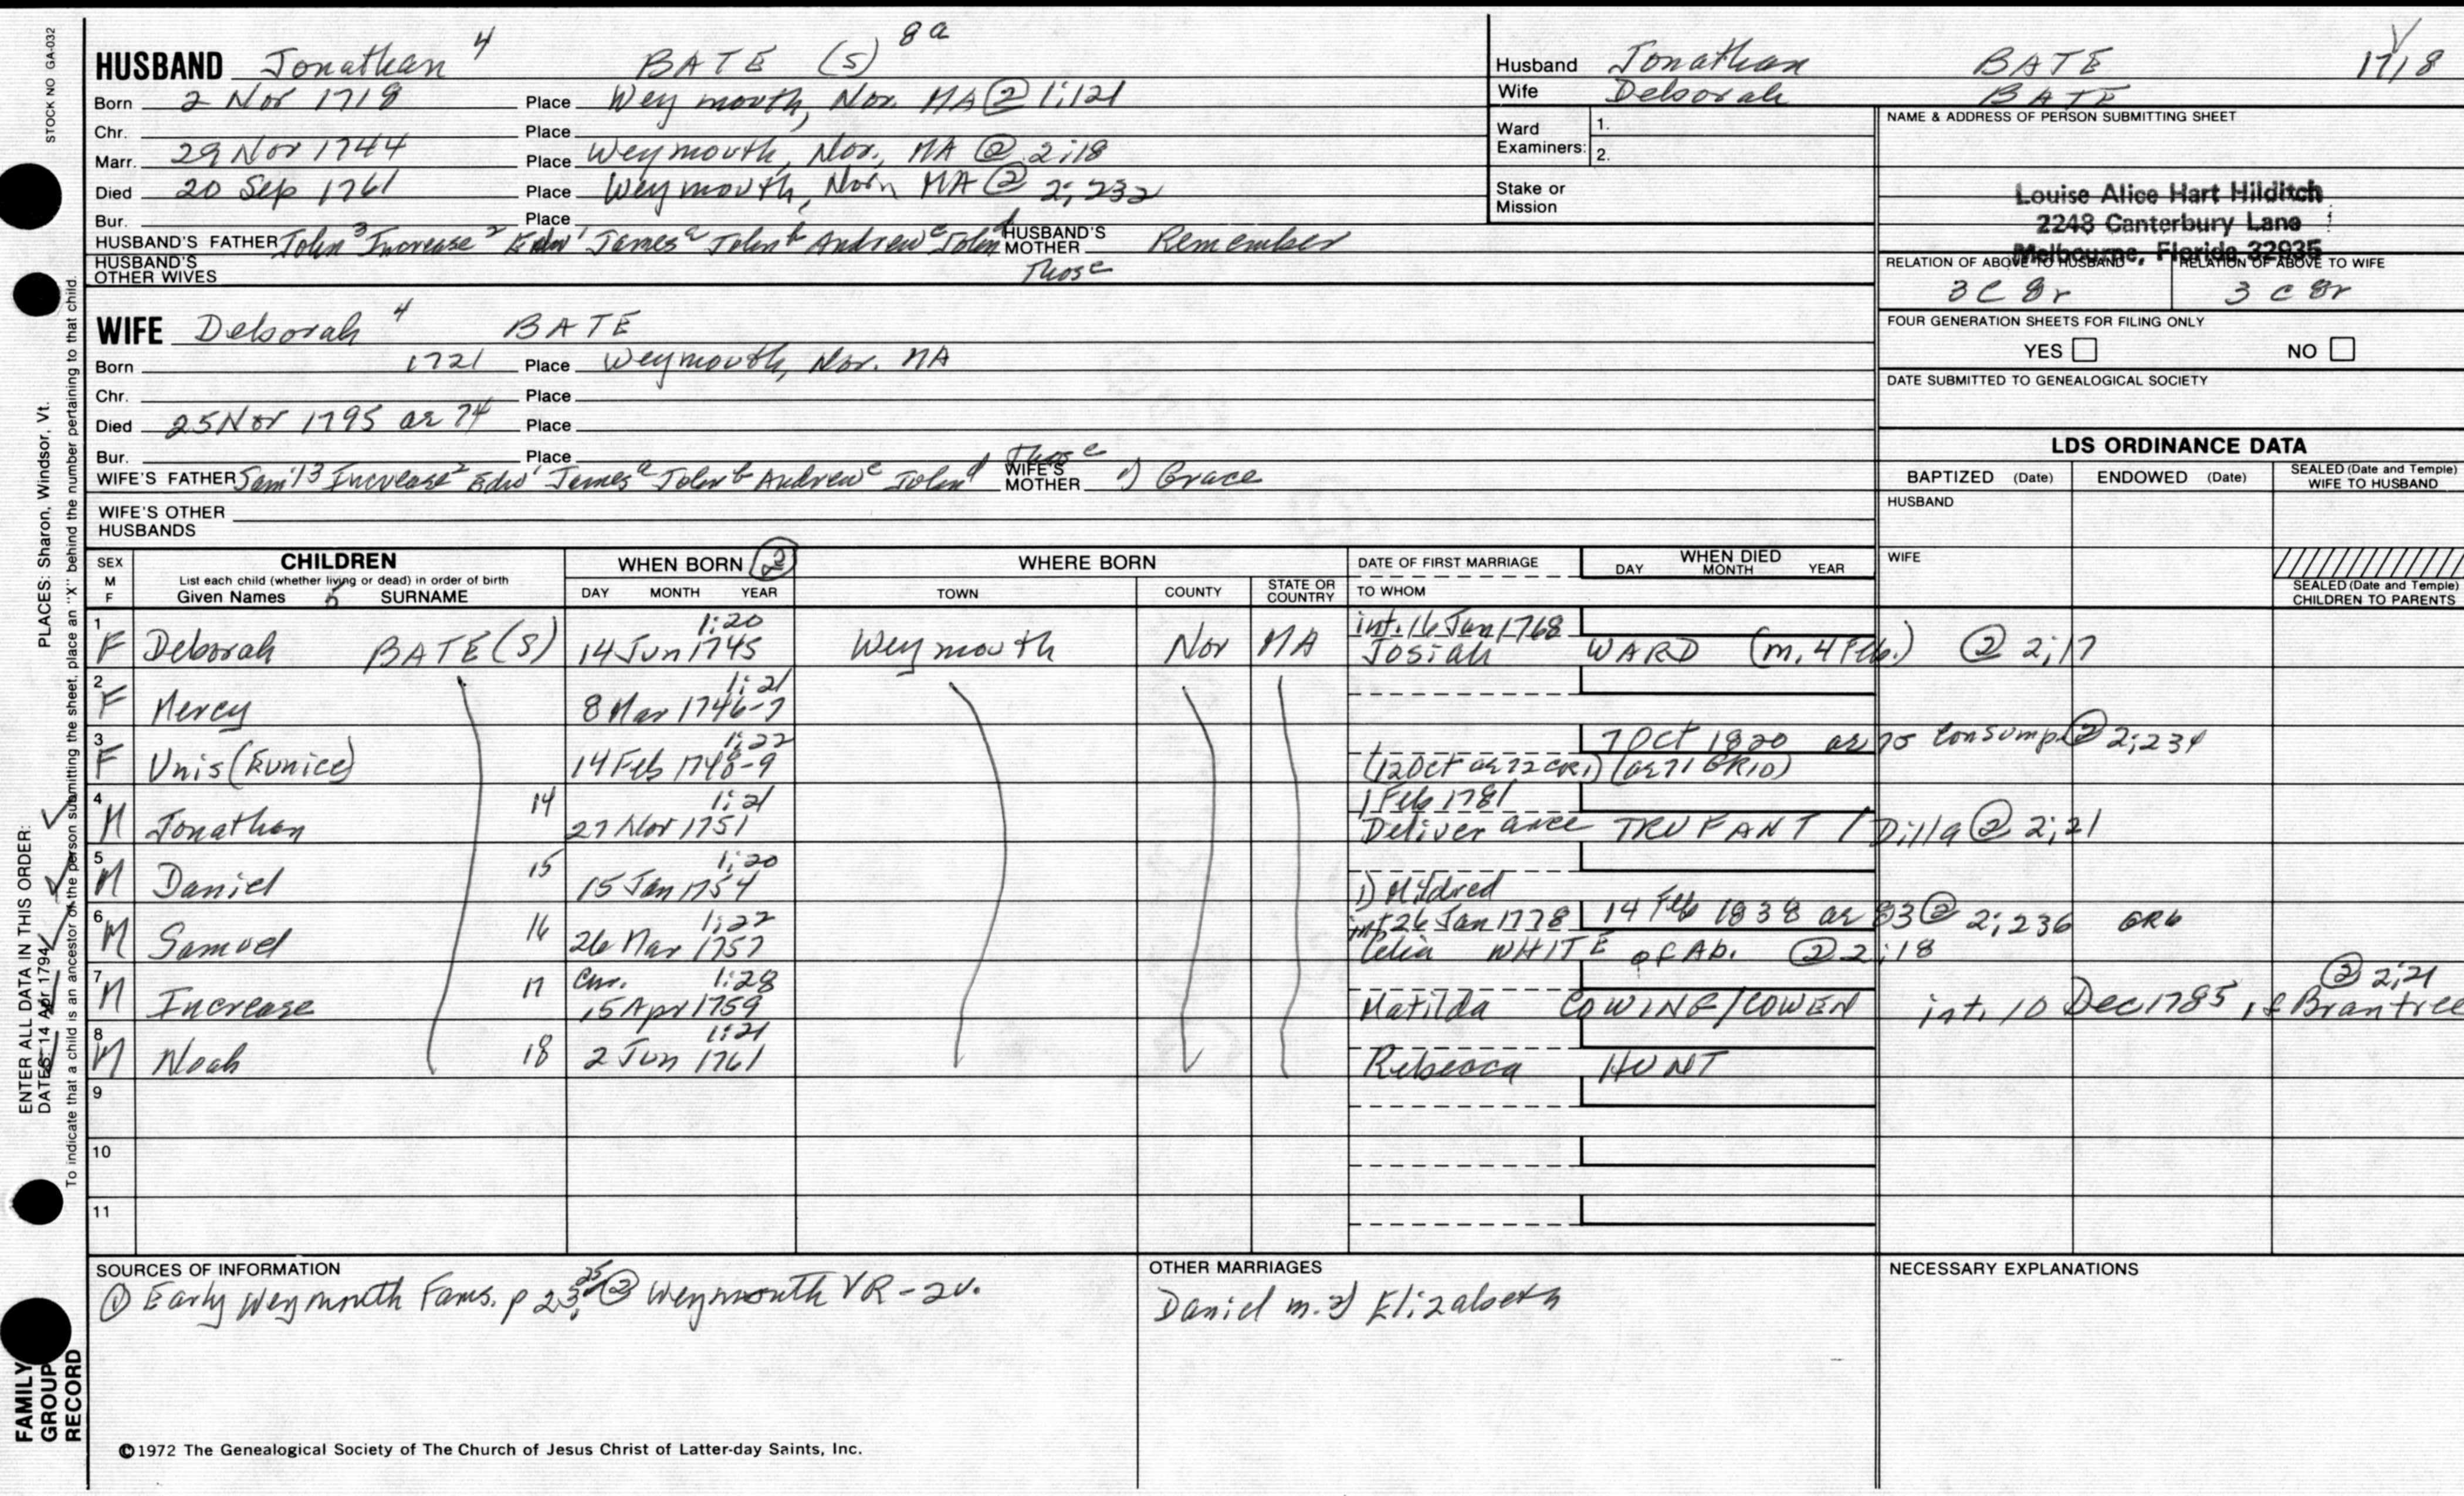 STOCK NO GA-032
HUSBAND Jonathan 4 BATE (S) 8a
Born 2 Nov 1718 Place Weymouth, Nor. MA @ 1;121
Chr. Place
Marr. 29 Nov 1744 Place Weymouth, Nor., MA @ 2;18
Died 20 Sep 1761 Place Weymouth, Nor MA @ 2;232
Bur. Place
HUSBAND'S FATHER John 3 Increase 2 Edw 1 James a John b Andrew c John d HUSBAND'S MOTHER Remember
Those
HUSBAND'S OTHER WIVES
Husband Jonathan BATE 1718
Wife Deborah BATE
Ward Examiners: 1.
2.
Stake or Mission
NAME & ADDRESS OF PERSON SUBMITTING SHEET
Louise Alice Hart Hilditch
2248 Canterbury Lane
Melbourne, Florida 32935
RELATION OF ABOVE TO HUSBAND RELATION OF ABOVE TO WIFE
3 C 8r 3 C 8r
FOUR GENERATION SHEETS FOR FILING ONLY
YES NO
DATE SUBMITTED TO GENEALOGICAL SOCIETY
WIFE Deborah 4 BATE
Born 1721 Place Weymouth, Nor. MA
Chr. Place
Died 25 Nov 1795 ae 74 Place
Bur. Place
Those
WIFE'S FATHER Sam'l 3 Increase 2 Edw 1 James a John b Andrew c John d WIFE'S MOTHER 1) Grace
WIFE'S OTHER HUSBANDS
LDS ORDINANCE DATA
BAPTIZED (Date) ENDOWED (Date) SEALED (Date and Temple) WIFE TO HUSBAND
HUSBAND
WIFE
SEALED (Date and Temple) CHILDREN TO PARENTS
SEX M F CHILDREN WHEN BORN (2) WHERE BORN DATE OF FIRST MARRIAGE WHEN DIED
List each child (whether living or dead) in order of birth
Given Names 5 SURNAME DAY MONTH YEAR TOWN COUNTY STATE OR COUNTRY TO WHOM DAY MONTH YEAR
1 1:20 int. 16 Jan 1768
F Deborah BATE (S) 14 Jun 1745 Weymouth Nor MA Josiah WARD (m. 4 Feb.) @ 2;17
2 1:21
F Mercy 8 Mar 1746-7
3 1;22 7 Oct 1820 ae 70 Consump. @ 2;234
F Unis (Eunice) 14 Feb 1748-9 (12 Oct ae 72 CR1) (ae 71 GR10)
4 14 1:21 1 Feb 1781
M Jonathan 27 Nov 1751 Deliverance TRUFANT / Dilla @ 2;21
5 15 1;20
M Daniel 15 Jan 1754 1) Mildred
6 16 1:22 int 26 Jan 1778 14 Feb 1838 ae 83 @ 2;236 GR6
M Samuel 26 Mar 1757 Celia WHITE of Ab. @ 2;18
7 17 Chr. 1:28 @ 2;21
M Increase 15 Apr 1759 Matilda COWING/COWEN int. 10 Dec 1785, of Braintree
8 18 1:21
M Noah 2 Jun 1761 Rebecca HUNT
9
10
11
SOURCES OF INFORMATION
(1) Early Weymouth Fams. p 23, 25 (2) Weymouth VR - 2v.
OTHER MARRIAGES
Daniel m. 2) Elizabeth
NECESSARY EXPLANATIONS
©1972 The Genealogical Society of The Church of Jesus Christ of Latter-day Saints, Inc.
PLACES: Sharon, Windsor, Vt.
ENTER ALL DATA IN THIS ORDER:
DATES: 14 Apr 1794
To indicate that a child is an ancestor of the person submitting the sheet, place an "X" behind the number pertaining to that child.
FAMILY GROUP RECORD